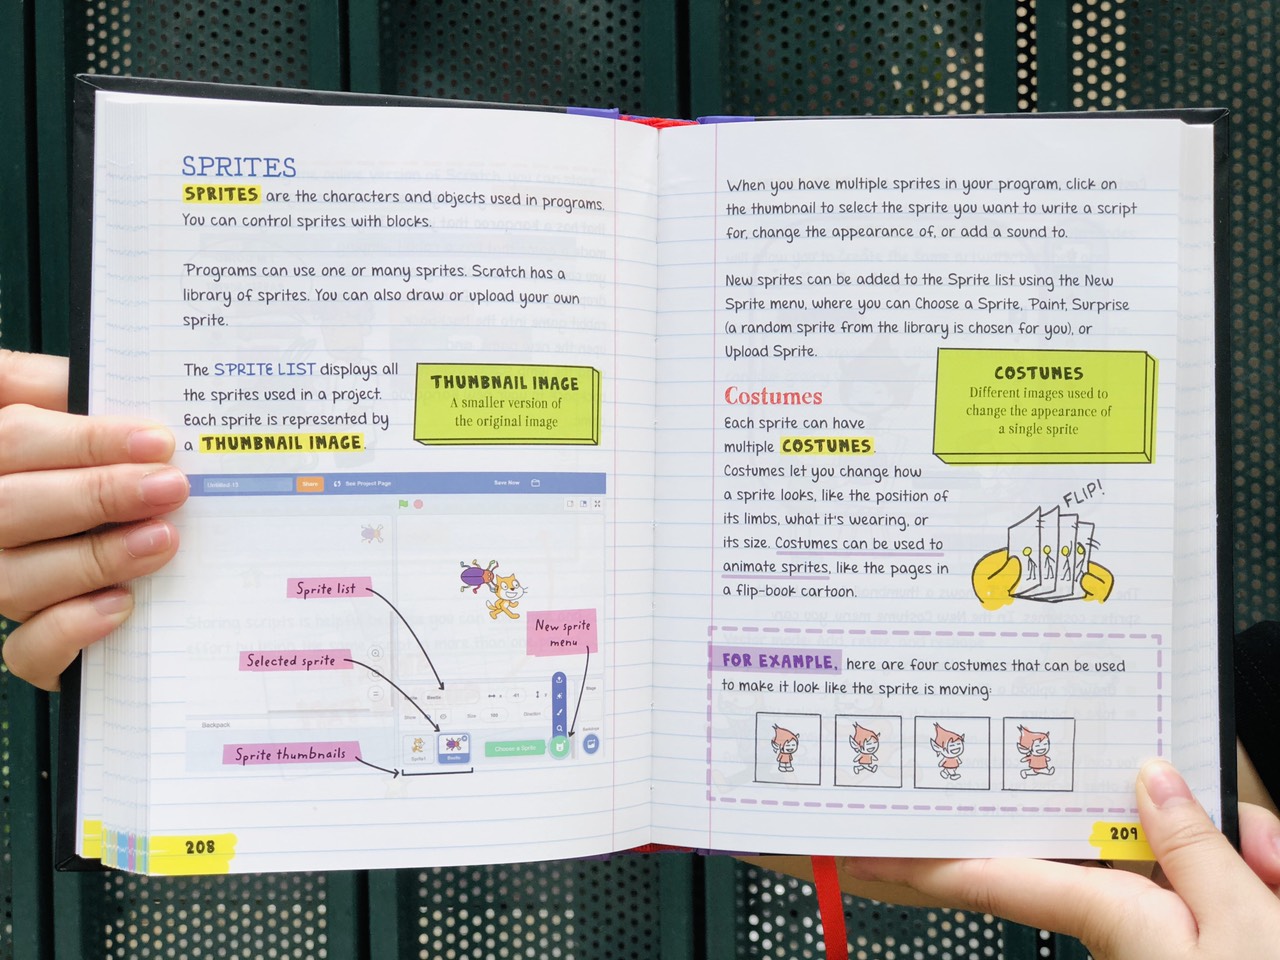 SPRITES
SPRITES are the characters and objects used in programs.
You can control sprites with blocks.
Programs can use one or many sprites. Scratch has a
library of sprites. You can also draw or upload your own
sprite.
The SPRITE LIST displays all
the sprites used in a project.
Each sprite is represented by
a THUMBNAIL IMAGE.
THUMBNAIL IMAGE
A smaller version of
the original image
Untitled-13
Share
See Project Page
Save Now
Sprite list
New sprite
menu
Selected sprite
Sprite thumbnails
Backpack
Stage
Size
Direction
Choose a Sprite
208
When you have multiple sprites in your program, click on
the thumbnail to select the sprite you want to write a script
for, change the appearance of, or add a sound to.
New sprites can be added to the Sprite list using the New
Sprite menu, where you can Choose a Sprite, Paint, Surprise
(a random sprite from the library is chosen for you), or
Upload Sprite.
COSTUMES
Different images used to
change the appearance of
a single sprite
Costumes
Each sprite can have
multiple COSTUMES.
Costumes let you change how
a sprite looks, like the position of
its limbs, what it's wearing, or
its size. Costumes can be used to
animate sprites, like the pages in
a flip-book cartoon.
FLIP!
FOR EXAMPLE, here are four costumes that can be used
to make it look like the sprite is moving:
209